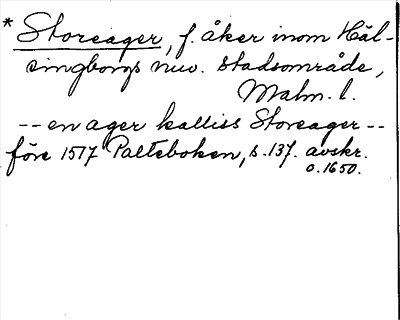 * Storeager, f. åker inom Häl-
singborgs nuv. stadsområde,
Malm. l.
-- en ager kalliss Storeager --
före 1517 Palteboken, s. 137. avskr.
o. 1650.